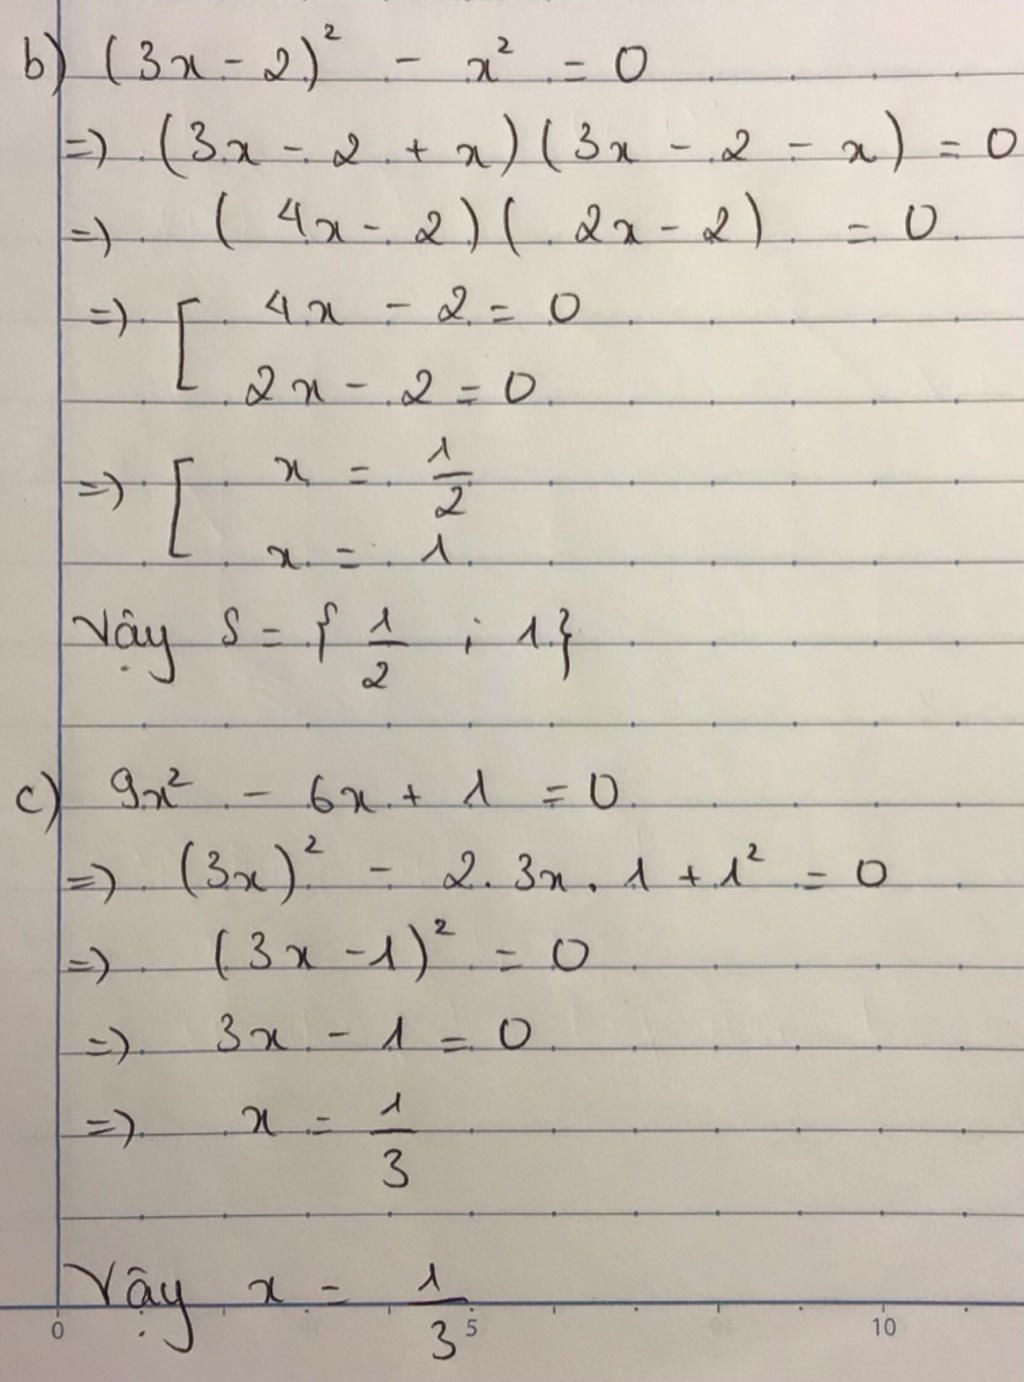 b) (3x - 2)² - x² = 0
=> (3x - 2 + x)(3x - 2 - x) = 0
=> (4x - 2)(2x - 2) = 0
=> [ 4x - 2 = 0
2x - 2 = 0
=> [ x = 1/2
x = 1
Vậy S = { 1/2 ; 1 }
c) 9x² - 6x + 1 = 0
=> (3x)² - 2.3x.1 + 1² = 0
=> (3x - 1)² = 0
=> 3x - 1 = 0
=> x = 1/3
Vậy x = 1/3
0 5 10